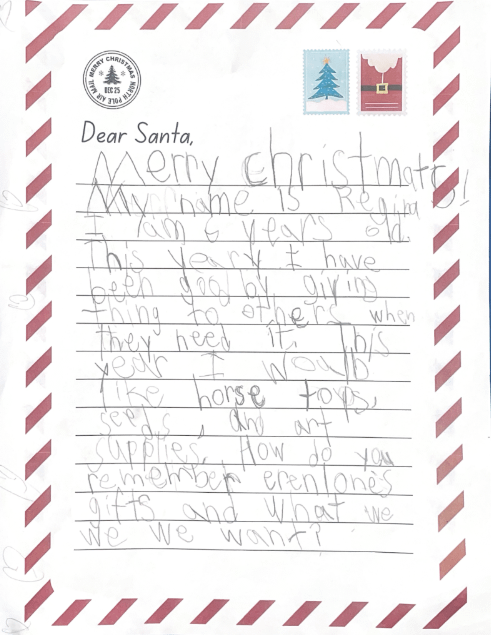 MERRY CHRISTMAS
NORTH POLE AIR MAIL
DEC 25
Dear Santa,
Merry christmats!
My name is Regina
I am 6 years old.
This year I have
been good by giving
thing to others when
they need it. This
year I woulb
like horse toys,
seeds, and art
supplies. How do you
remember erenlones
gifts and what we
we we want?